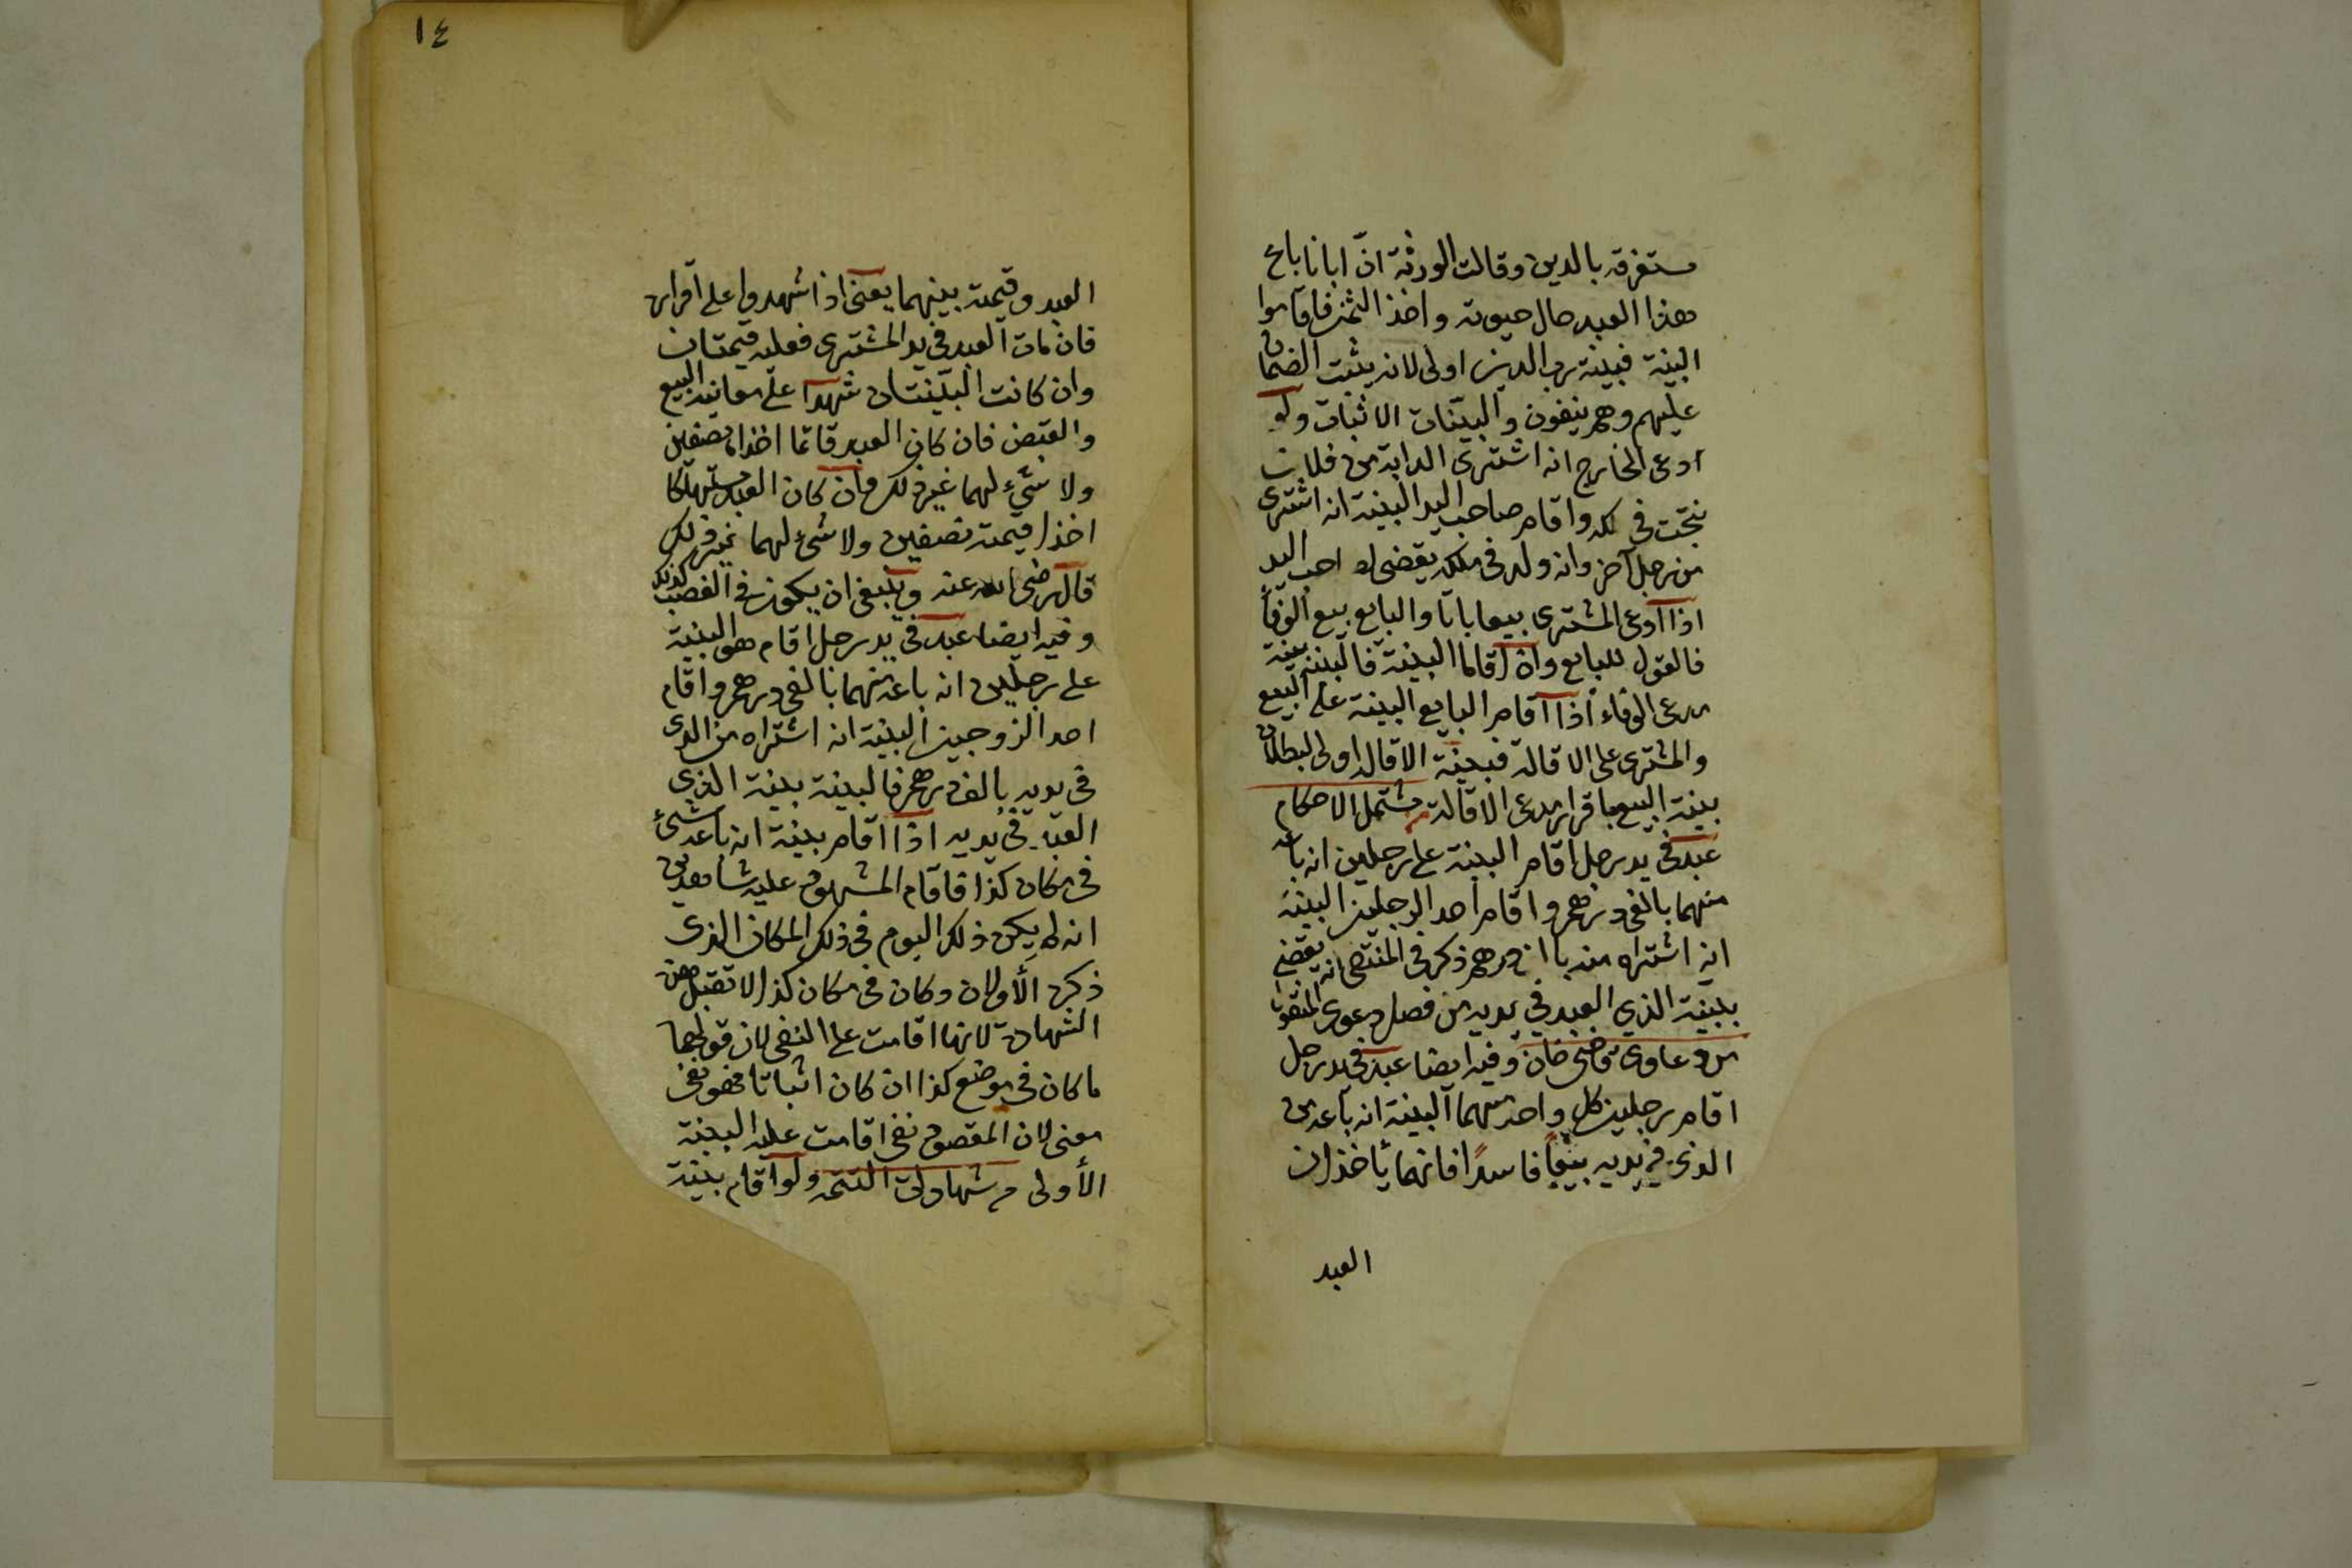 مستغرقه بالدين وقالت الورثة انّ ابانا باع
هذا العبد حال حيوته واخذ الثمن فاقاموا
البينة فبينة رب الدين اولى لانه يثبت الضمان
عليهم وهم ينفون والبينات الاثبات ولو
ادعى الخارج انه اشترى الدابة من فلان
نتجت في ملكه واقام صاحب اليد البينة انه اشترى
من رجل آخر وانه ولد في ملكه يقضى لصاحب اليد
اذا ادعى المشترى بيعا باتا والبايع بيع الوفاء
فالقول للبايع وان اقاما البينة فالبينة بينة
مدعى الوفاء اذا اقام البايع البينة على البيع
والمشترى على الاقالة فبينة الاقالة اولى لبطلان
بينة البيع باقرار مدعى الاقالة مشتمل الاحكام
عبد في يد رجل اقام البينة على رجلين انه باعه
منهما بالف درهم واقام احد الرجلين البينة
انه اشتراه منه بالف درهم ذكر في المنتقى انه يقضى
ببينة الذي العبد في يديه من فصل دعوى المنقول
من دعاوى قاضى خان وفيه ايضا عبد في يد رجل
اقام رجلين كل واحد منهما البينة انه باعه من
الذى في يديه بيعاً فاسدًا فانهما يأخذان
العبد
١٤
العبد وقيمته بينهما يعنى اذا شهدوا على اقراره
فان مات العبد في يد المشترى فعليه قيمتان
وان كانت البينتان شهدا على معاينة البيع
والقبض فان كان العبد قائما اخذاه نصفين
ولا شئ لهما غير ذلك وان كان العبد مستهلكا
اخذا قيمته نصفين ولا شئ لهما غير ذلك
قال رضى الله عنه وينبغى ان يكون في الغصب كذلك
وفيه ايضا عبد في يد رجل اقام هو البينة
على رجلين انه باعه منهما بالف درهم واقام
احد الزوجين البينة انه اشتراه من الذى
في يديه بالف درهم فالبينة بينة الذي
العبد في يديه اذا اقام بينة انه باعه شئ
في مكان كذا فاقام المشهود عليه شاهدين
انه لم يكن ذلك اليوم في ذلك المكان الذى
ذكره الأولان وكان في مكان كذا لا تقبل هذه
الشهادة لانها اقامت على النفى لان قولهما
ما كان في موضع كذا ان كان اثباتا فهو نفى
معنى لان المقصود نفى اقامت عليه البينة
الأولى من شهادات التتمه ولو اقام بينة